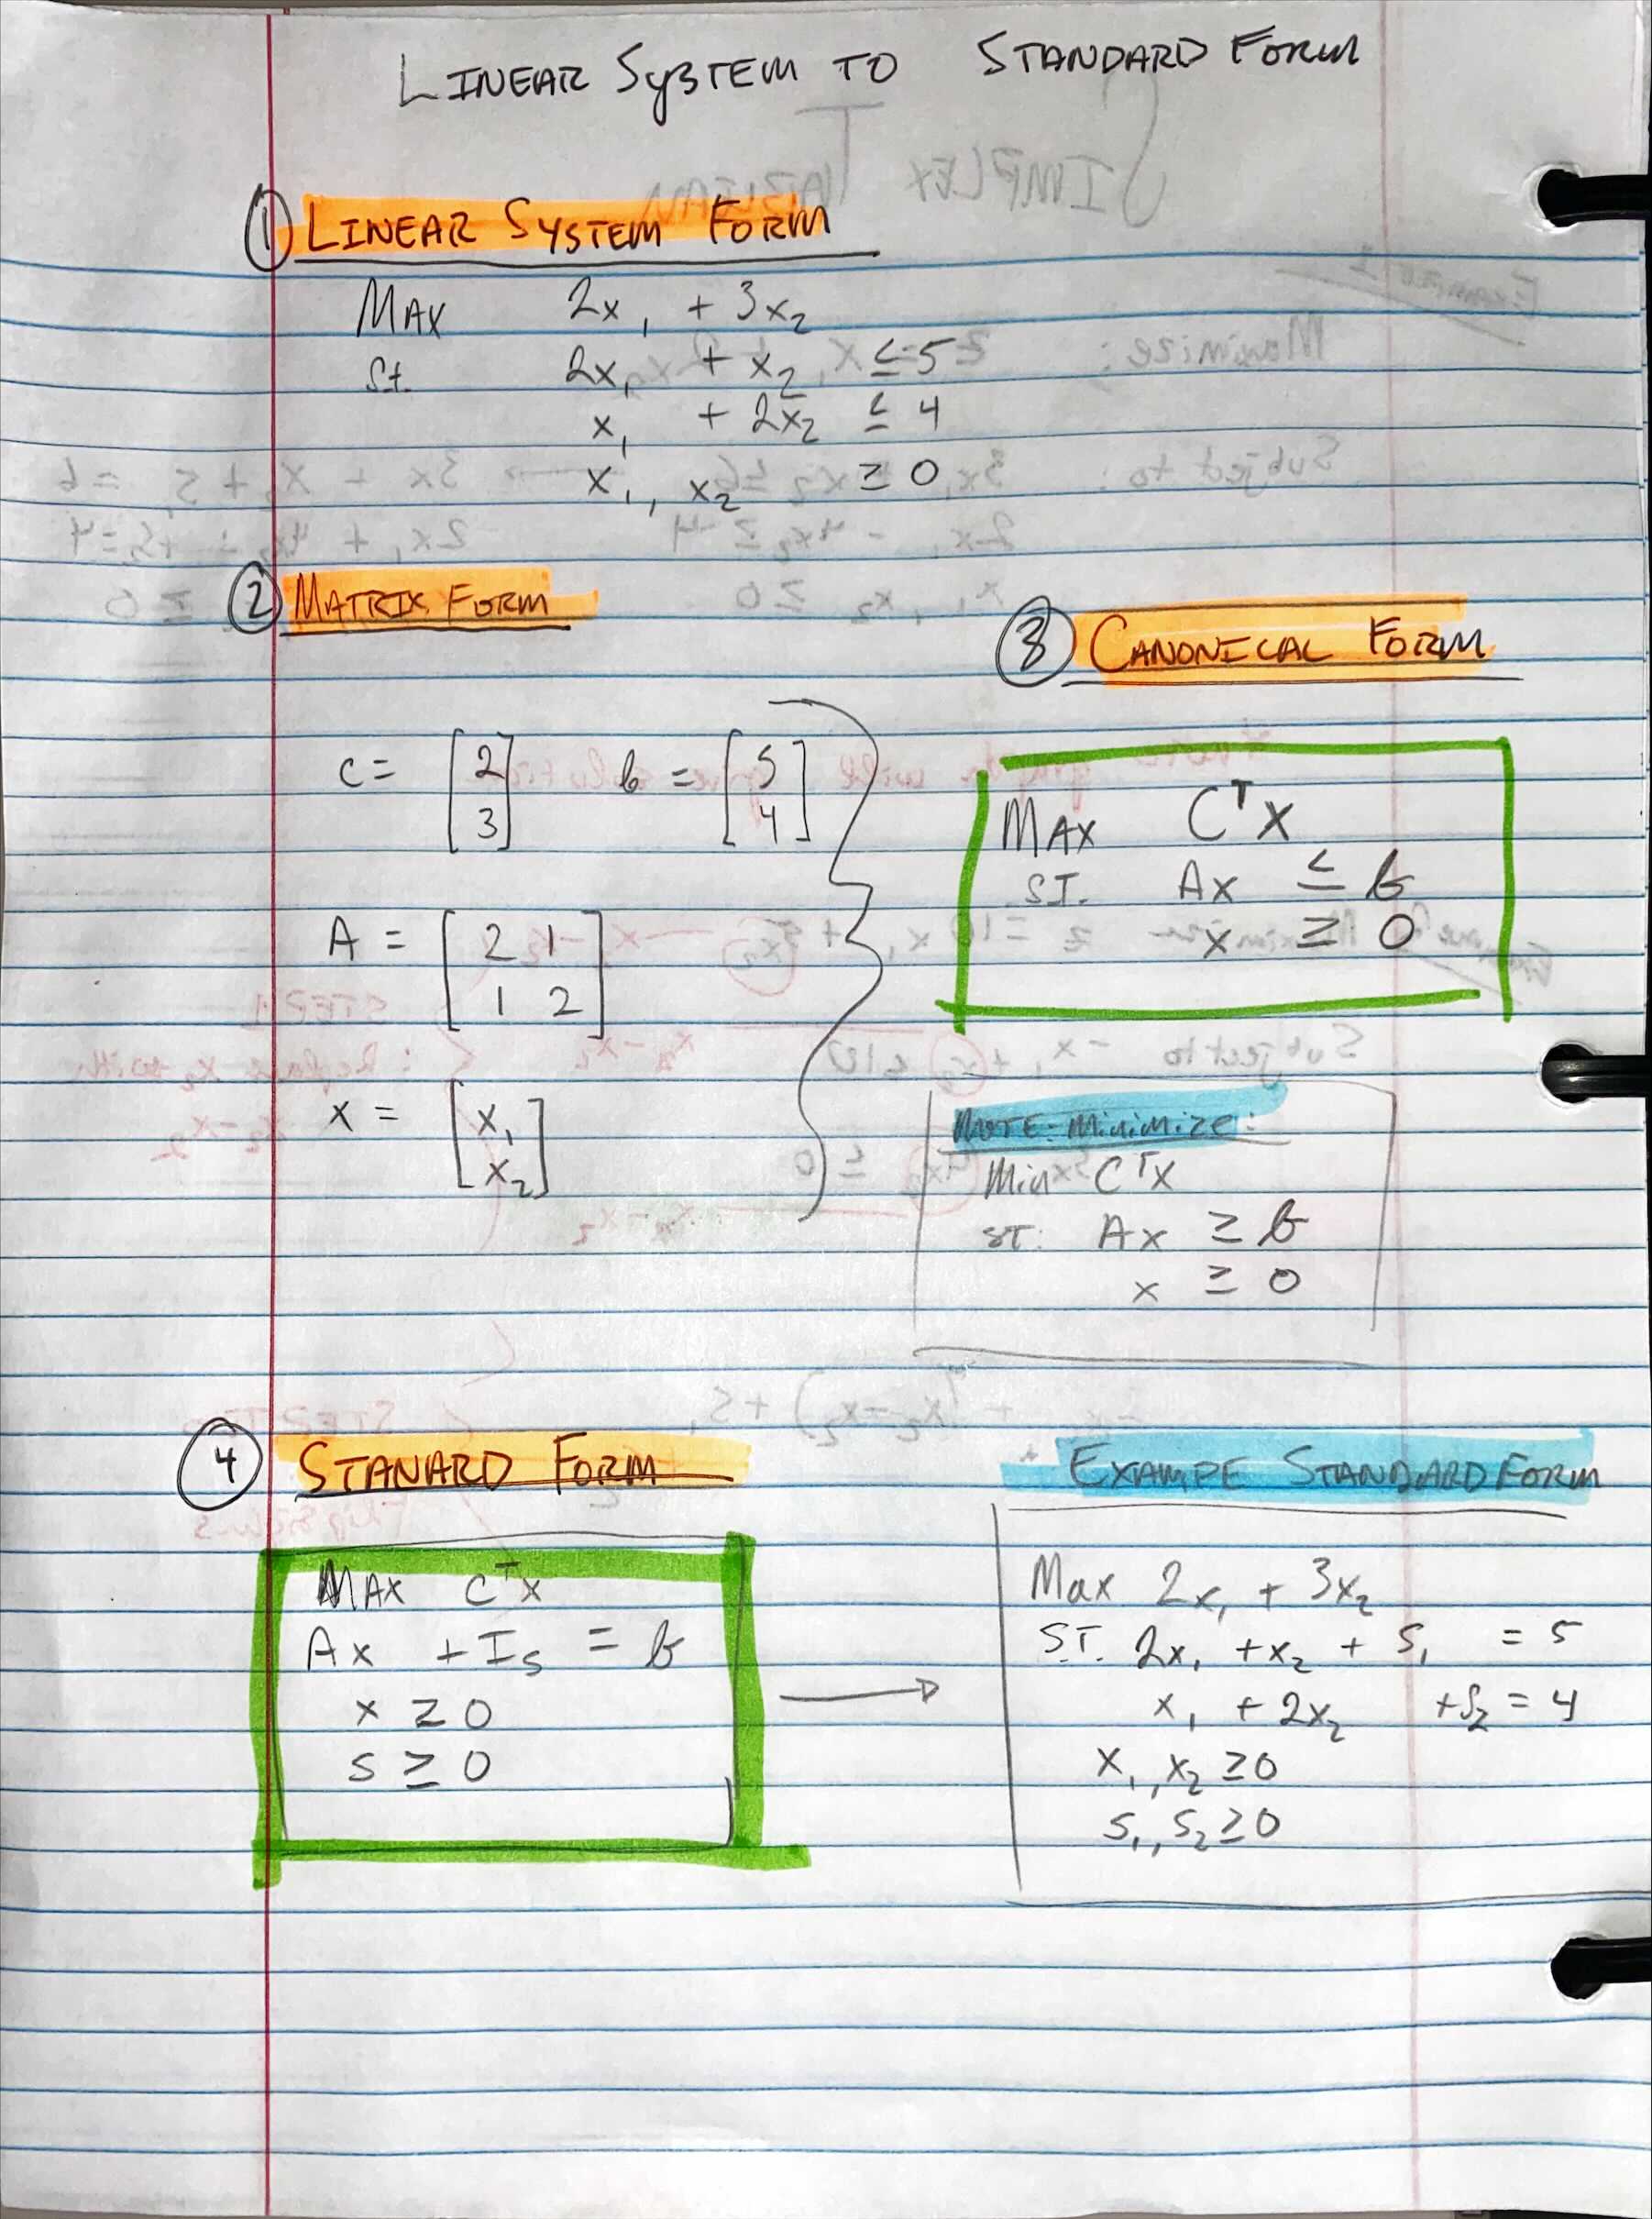 LINEAR SYSTEM TO STANDARD FORM
① LINEAR SYSTEM FORM
MAX 2x₁ + 3x₂
St. 2x₁ + x₂ ≤ 5
x₁ + 2x₂ ≤ 4
x₁, x₂ ≥ 0
② MATRIX FORM
c = [2 3] b = [5 4]
A = [2 1
1 2]
x = [x₁
x₂]
③ CANONICAL FORM
MAX CᵀX
ST. Ax ≤ b
x ≥ 0
NOTE: Minimize:
Min CᵀX
ST. Ax ≥ b
x ≥ 0
④ STANARD FORM
MAX CᵀX
Ax + Is = b
x ≥ 0
s ≥ 0
EXAMPE STANDARD FORM
Max 2x₁ + 3x₂
S.T. 2x₁ + x₂ + s₁ = 5
x₁ + 2x₂ + s₂ = 4
x₁, x₂ ≥ 0
s₁, s₂ ≥ 0